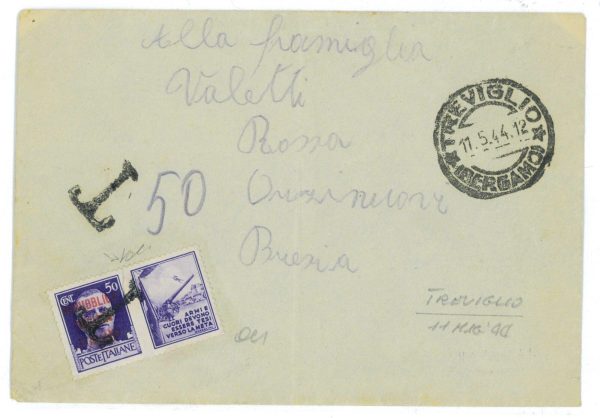 Alla famiglia
Valetti
Rossa
Orzinuovi
Brescia
TREVIGLIO
11.5.44.12
(BERGAMO)
T
50
CENT 50
POSTE ITALIANE
ARMI E
CUORI DEVONO
ESSERE TESI
VERSO LA META
TREVIGLIO
11 MAG '44